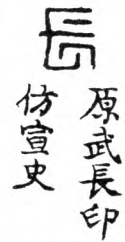 長
原武長印
仿宣史